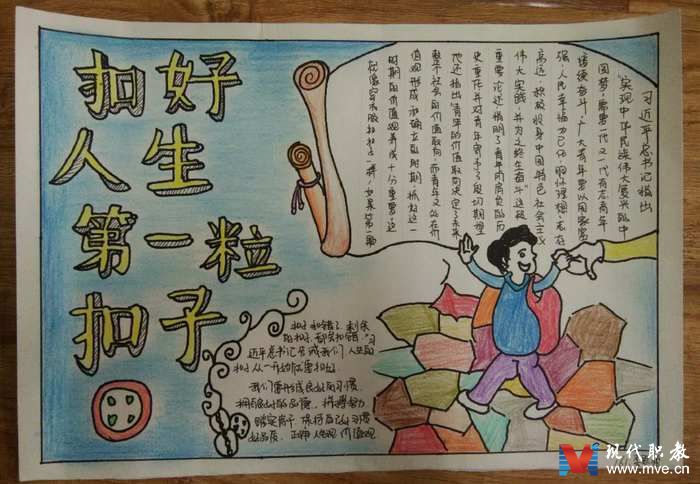 扣好
人生
第一粒
扣子
习近平总书记指出
"实现中华民族伟大复兴的中
国梦,需要一代又一代有志青年
接续奋斗。广大青年要以国家富
强、人民幸福为己任,胸怀理想、志存
高远,投身中国特色社会主义
伟大实践,并为之终生奋斗"这段
重要论述指明了青年的肩负的历
史重任并对青年寄予了殷切期望
他还指出"青年的价值取向决定了未来
整个社会的价值取向,而青年又处在价
值观形成和确立的时期,抓好这一
时期的价值观养成十分重要。这
就像穿衣服扣扣子一样,如果第一颗
扣子扣错了,剩余
的扣子都会扣错。"习
近平总书记告诫我们,人生的
扣子从一开始就要扣好
我们要养成良好的习惯
拥有良好的品德,
踏实肯干,保持自己的习惯
好品质,正确人生观价值观
现代职教
www.mve.cn